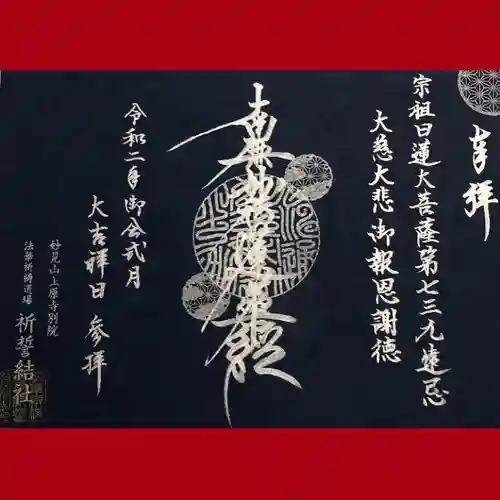 奉拝
宗祖日蓮大菩薩第七三九遠忌
大慈大悲御報恩謝徳
南無妙法蓮華経
令和二年御会式月
大吉祥日 参拝
妙見山上原寺別院
法華祈祷道場
祈誓結社